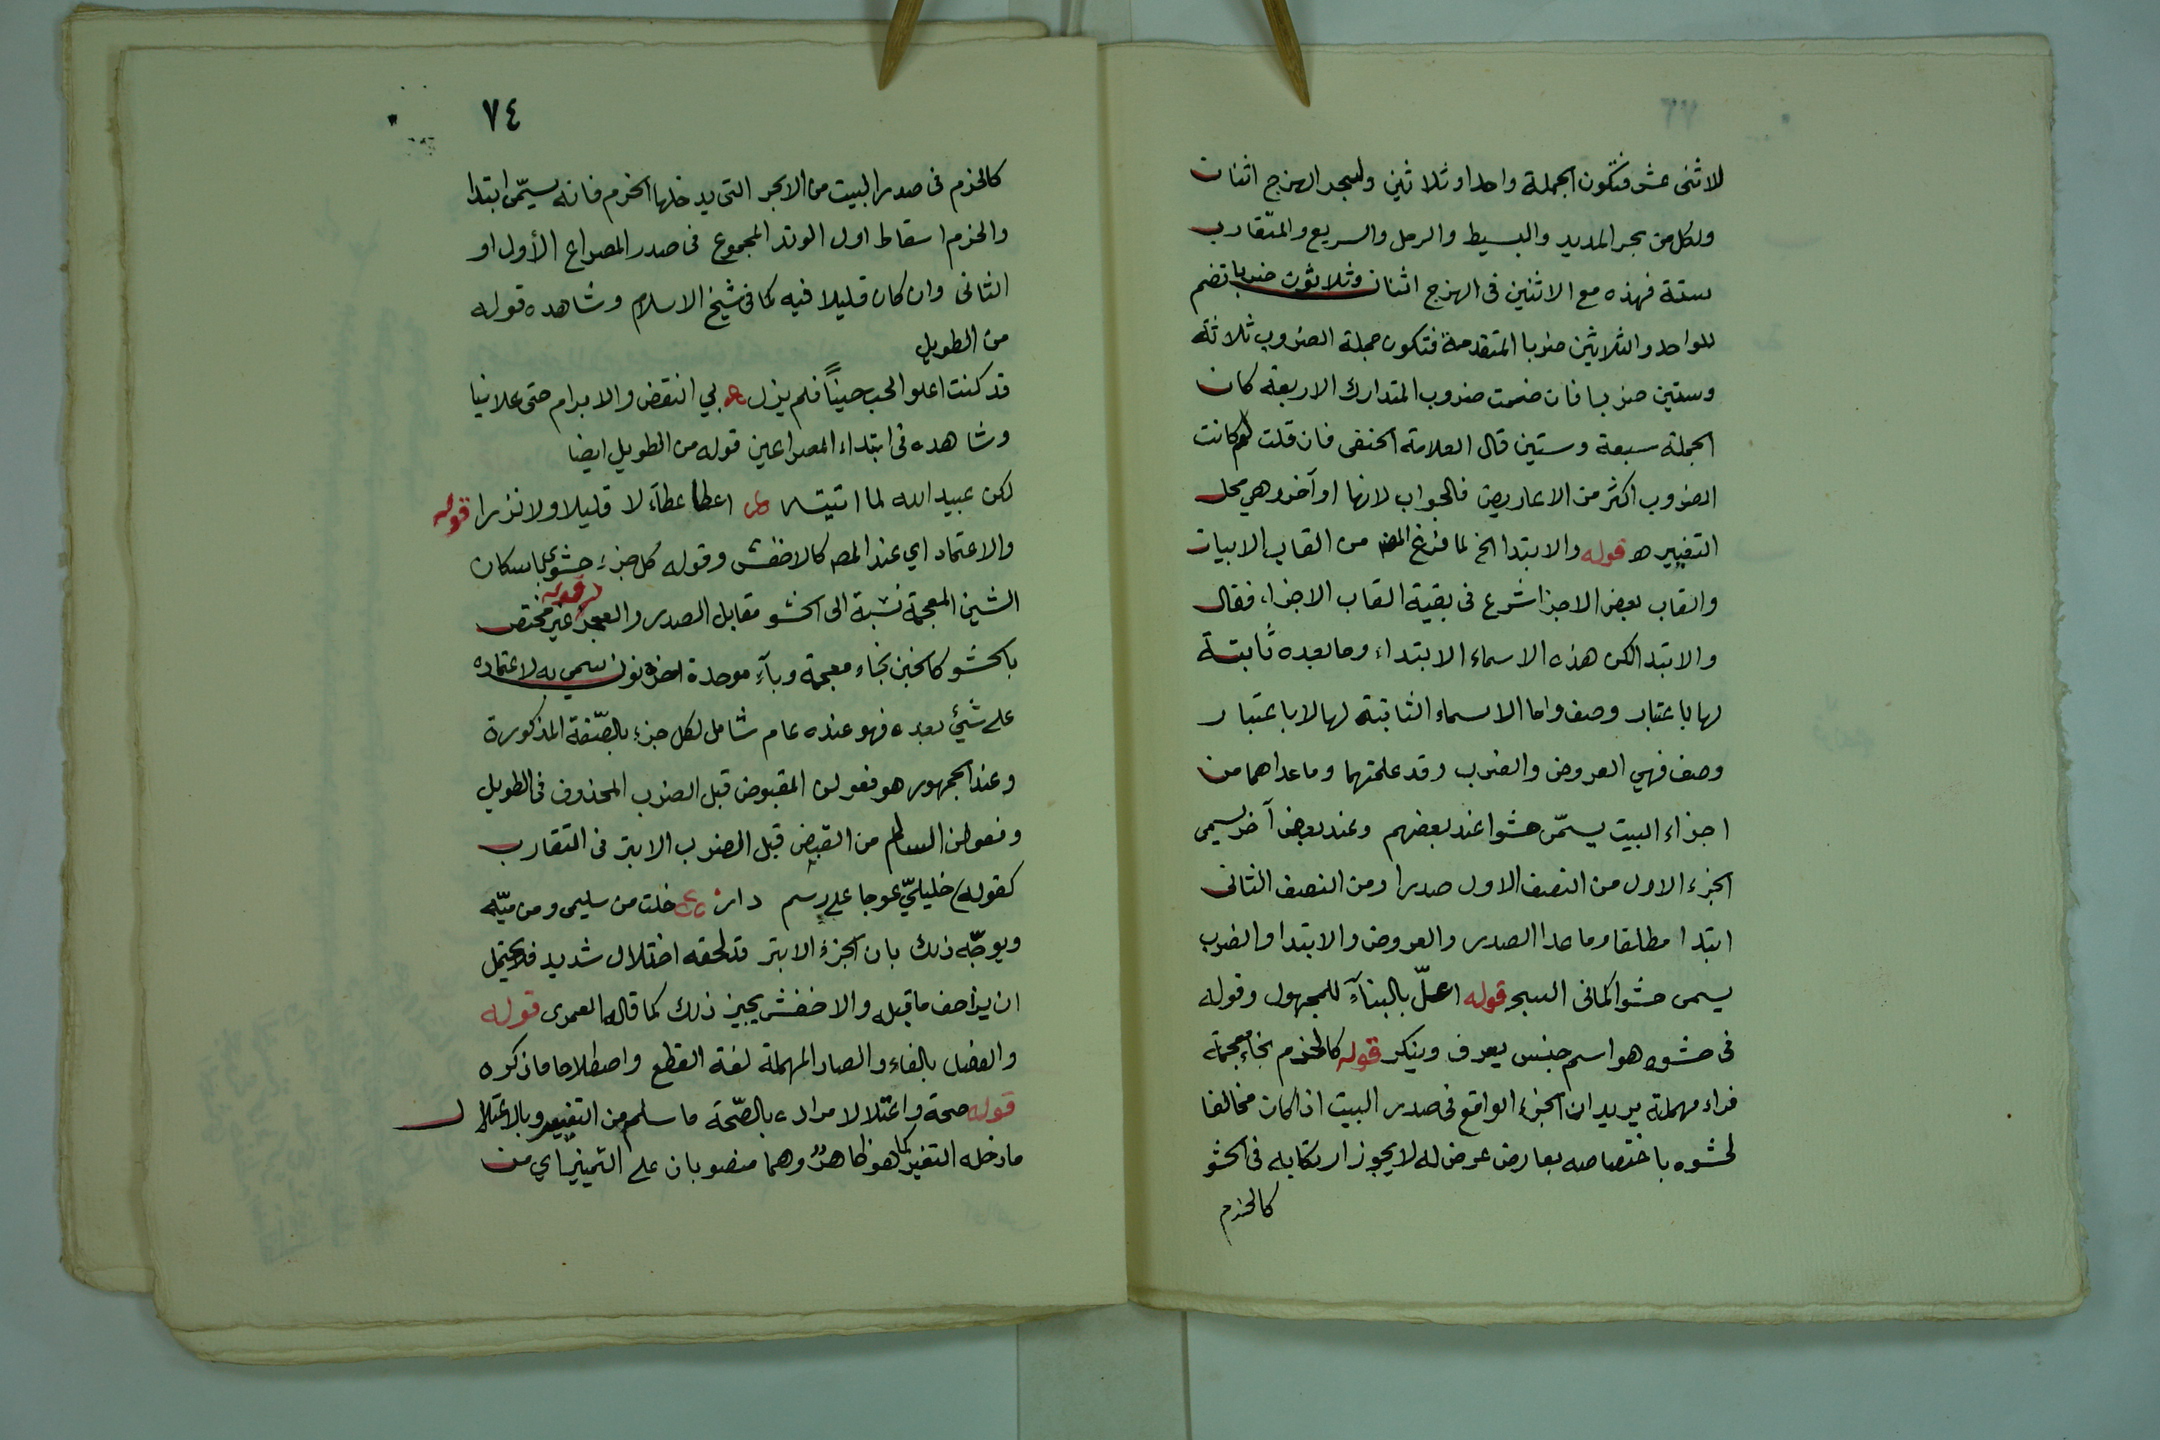 للاثنى عشر فتكون الجملة واحدا وثلاثين ولبحر الهزج اثنان
ولكل من بحر المديد والبسيط والرمل والسريع والمتقارب
ستة فهذه مع الاثنين فى الهزج اثنان وثلاثون ضربا تضم
للواحد والثلاثين ضربا المتقدمة فتكون جملة الضروب ثلاثة
وستين ضربا فان ضممت ضروب المتدارك الاربعة كان
الجملة سبعة وستين قال العلامة الحنفى فان قلت لم كانت
الضروب اكثر من الاعاريض فالجواب لانها اواخر وهي محل
التغيير ه قوله والابتدا الخ لما فرغ المص من القاب الابيات
والقاب بعض الاجزا شرع فى بقية القاب الاجزاء فقال
والابتدا لكن هذه الاسماء الابتداء وما بعده ثابتة
لها باعتبار وصف واما الاسماء الثابتة لها لا باعتبار
وصف فهي العروض والضرب وقد علمتهما وما عداهما من
اجزاء البيت يسمّى حشوا عند بعضهم وعند بعض آخر يسمى
الجزء الاول من النصف الاول صدرا ومن النصف الثانى
ابتدا مطلقا وما عدا الصدر والعروض والابتدا والضرب
يسمى حشوا كما فى السجر قوله اعلّ بالبناء للمجهول وقوله
فى حشوه هو اسم جنس يعرف وينكر قوله كالخرم بخاء معجمة
فراء مهملة يريد ان الجزء الواقع فى صدر البيت اذا كان مخالفا
لحشوه باختصاصه بعارض عرض له لا يجوز ارتكابه فى الحشو
كالخرم
٧٤
كالخرم فى صدر البيت من الابحر التى يدخلها الخرم فانه يسمّى ابتدا
والخرم اسقاط اول الوتد المجموع فى صدر المصراع الأول او
الثانى وان كان قليلا فيه كما فى شيخ الاسلام وشاهده قوله
من الطويل
قد كنت اعلو الحب حيناً فلم يزل ه بي النقض والابرام حتى علانيا
وشاهده فى ابتداء المصراعين قوله من الطويل ايضا
لكن عبيد الله لما اتيته اعطا عطاءً لا قليلا ولا نزرا قوله
والاعتماد اي عند المصه كالاخفش وقوله كل جزء حشوى باسكان
الشين المعجمة نسبة الى الحشو مقابل الصدر والعجز قوله غير مختص
بالحشو كالخبن بخاء معجمة وباء موحدة اخره نون سمي به لاعتماده
على شيئ بعده فهو عنده عام شامل لكل جزء بالصّفة المذكورة
وعند الجمهور هو فعولن المقبوض قبل الضرب المحذوف فى الطويل
وفعولن السالم من القبض قبل الضرب الابتر فى المتقارب
كقوله خليليّ عوجا على رسم دار خلت من سليمى ومن ميّه
ويوجّه ذلك بان الجزء الابتر قد لحقه اختلال شديد فلا يحتمل
ان يزاحف ما قبله والاخفش يجيز ذلك كما قاله العمرى قوله
والفصل بالفاء والصاد المهملة لغة القطع واصطلاحا ما ذكره
قوله صحة واعتلالا مراده بالصّحة ما سلم من التغيير وبالاعتلال
ما دخله التغيير كما هو ظاهر وهما منصوبان على التمييز اي من